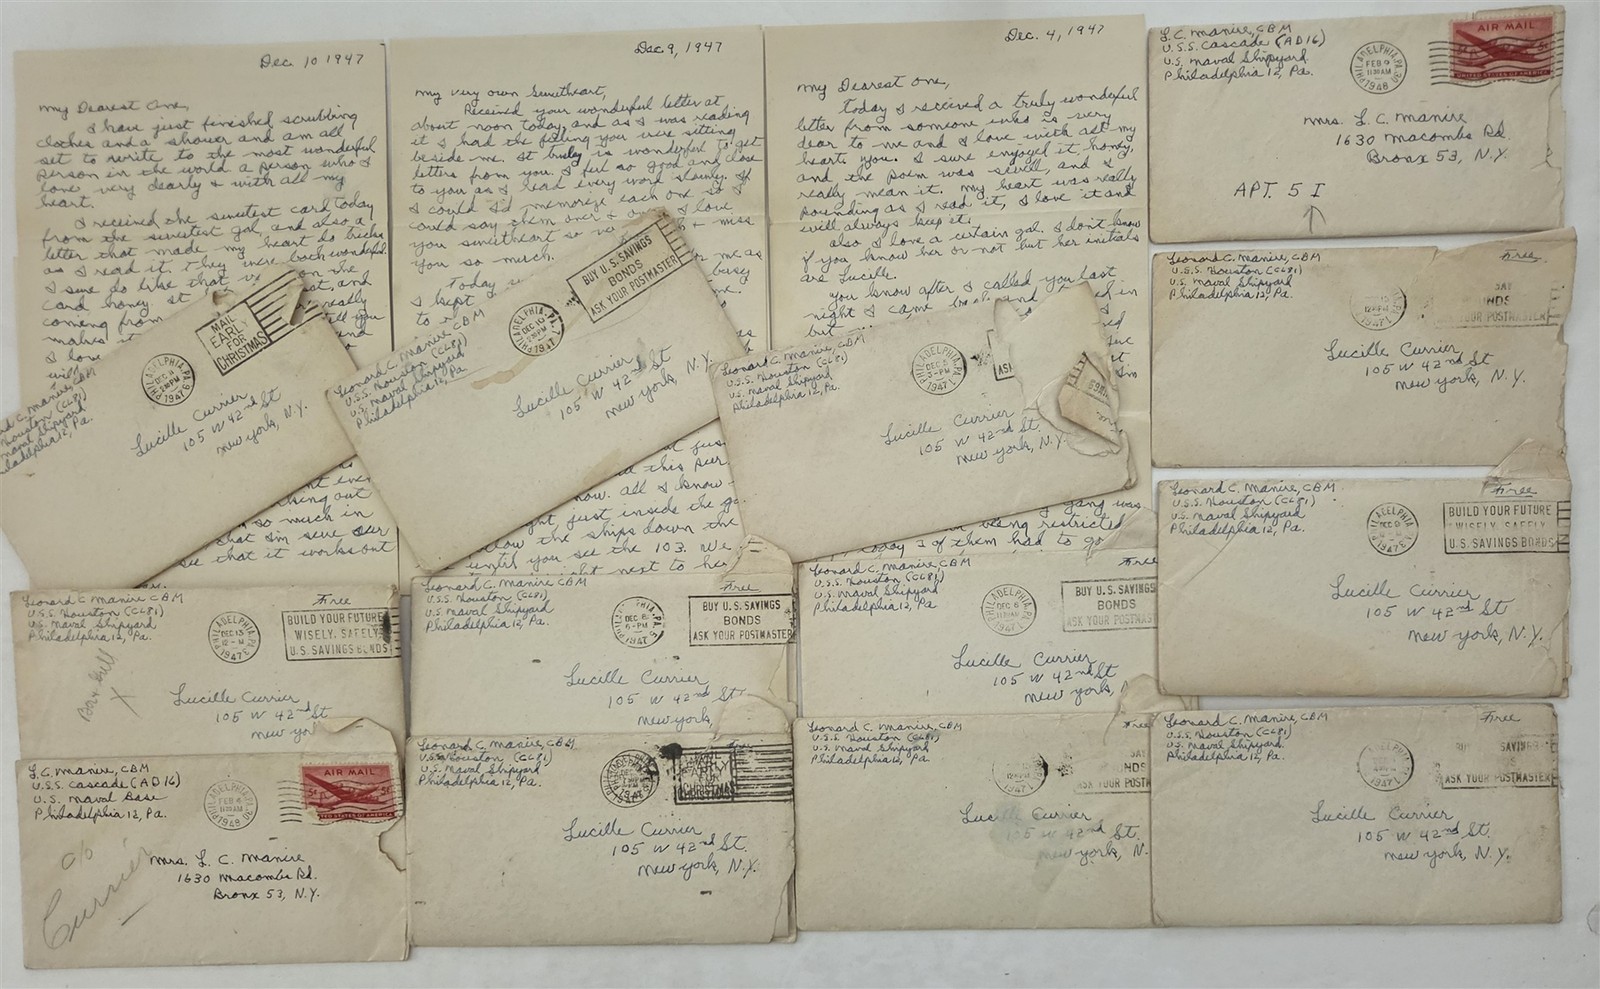 Dec. 10 1947
My Dearest One,
I have just finished scrubbing
clothes and a shower and am all
set to write to the most wonderful
person in the world a person who I
love very dearly & with all my
heart.
I received the sweetest card today
from the sweetest gal, and also a
letter that made my heart do tricks
as I read it. they were both wonderful.
I sure do like that
card honey. It
coming from
makes it
I love
on the
and
really
you
and
out
so much in
that I'm sure our
see that it works out
Dec 9, 1947
My very own Sweetheart,
Received your wonderful letter at
about noon today, and as I was reading
it I had the feeling you were sitting
beside me. It truly is wonderful to get
letters from you. I feel so good and close
to you as I read every word slowly. If
I could I'd memorize each one so I
could say them over & over. I love
you sweetheart so & miss
you so much.
Today
I kept
me as
busy
this
now. all I know
just inside the
the ships down the
until you see the 103. We
right next to her
Dec. 4, 1947
My Dearest One,
Today I received a truly wonderful
letter from someone who is very
dear to me and I love with all my
heart, you. I sure enjoyed it honey,
and the poem was swell, and I
really mean it. My heart was really
pounding as I read it, I love it and
will always keep it.
also I love a certain gal. I don't know
if you know her or not but her initials
are Lucille.
You know after I called you last
night I came back and
but
gang was
being restricted
today 2 of them had to go
L. C. Manire, CBM
U.S.S. Cascade (AD16)
U.S. Naval Shipyard
Philadelphia 12, Pa.
PHILADELPHIA, PA. 30
FEB 9
11 30 AM
1948
AIR MAIL
5¢
UNITED STATES OF AMERICA
Mrs. L. C. Manire
1630 Macombs Rd.
Bronx 53, N.Y.
APT. 5 I
Leonard C. Manire, CBM
U.S.S. Houston (CL81)
U.S. Naval Shipyard
Philadelphia 12, Pa.
Free
1947
BONDS
ASK YOUR POSTMASTER
Lucille Currier
105 W 42nd St
New York, N.Y.
C. Manire, CBM
Houston (CL81)
Naval Shipyard
Philadelphia 12, Pa.
PHILADELPHIA, PA.
DEC
PM
1947
MAIL
EARLY
FOR
CHRISTMAS
Lucille Currier
105 W 42nd St
New York, N.Y.
Leonard C. Manire, CBM
U.S.S. Houston (CL81)
U.S. Naval Shipyard
Philadelphia 12, Pa.
PHILADELPHIA, PA.
DEC 10
PM
1947
BUY U.S. SAVINGS
BONDS
ASK YOUR POSTMASTER
Lucille Currier
105 W 42nd St
New York, N.Y.
Leonard C. Manire, CBM
U.S.S. Houston (CL81)
U.S. Naval Shipyard
Philadelphia 12, Pa.
PHILADELPHIA, PA.
DEC
3-PM
1947
ASK
Lucille Currier
105 W 42nd St.
New York, N.Y.
Leonard C. Manire, CBM
U.S.S. Houston (CL81)
U.S. Naval Shipyard
Philadelphia 12, Pa.
Free
PHILADELPHIA, PA.
DEC
1947
BUILD YOUR FUTURE
WISELY, SAFELY
U.S. SAVINGS BONDS
Lucille Currier
105 W 42nd St
New York, N.Y.
Leonard C. Manire, CBM
U.S.S. Houston (CL81)
U.S. Naval Shipyard
Philadelphia 12, Pa.
Free
PHILADELPHIA, PA.
DEC 13
1947
BUILD YOUR FUTURE
WISELY, SAFELY
U.S. SAVINGS BONDS
Bar & Grill
X
Lucille Currier
105 W 42nd St
New York
Leonard C. Manire, CBM
U.S.S. Houston (CL81)
U.S. Naval Shipyard
Philadelphia 12, Pa.
Free
DEC 8
6-PM
1947
BUY U.S. SAVINGS
BONDS
ASK YOUR POSTMASTER
Lucille Currier
105 W 42nd St
New York,
Leonard C. Manire, CBM
U.S.S. Houston (CL81)
U.S. Naval Shipyard
Philadelphia 12, Pa.
Free
PHILADELPHIA, PA.
DEC 6
1947
BUY U.S. SAVINGS
BONDS
ASK YOUR POSTMAS
Lucille Currier
105 W 42nd St
New York, N
L. C. Manire, CBM
U.S.S. Cascade (AD16)
U.S. Naval Base
Philadelphia 12, Pa.
PHILADELPHIA, PA. 30
FEB
11 30 AM
1948
AIR MAIL
5¢
UNITED STATES OF AMERICA
c/o
Currier
Mrs. L. C. Manire
1630 Macombs Rd.
Bronx 53, N.Y.
Leonard C. Manire, CBM
U.S.S. Houston (CL81)
U.S. Naval Shipyard
Philadelphia 12, Pa.
Free
DEC
PM
MAIL
EARLY
FOR
CHRISTMAS
Lucille Currier
105 W 42nd St.
New York, N.Y.
Leonard C. Manire, CBM
U.S.S. Houston (CL81)
U.S. Naval Shipyard
Philadelphia 12, Pa.
Free
1947
ASK YOUR POSTM
Lucille Currier
105 W 42nd St.
New York, N.
Leonard C. Manire, CBM
U.S.S. Houston (CL81)
U.S. Naval Shipyard
Philadelphia 12, Pa.
Free
1947
BUY SAVINGS
ASK YOUR POSTMASTER
Lucille Currier
105 W 42nd St.
New York, N.Y.